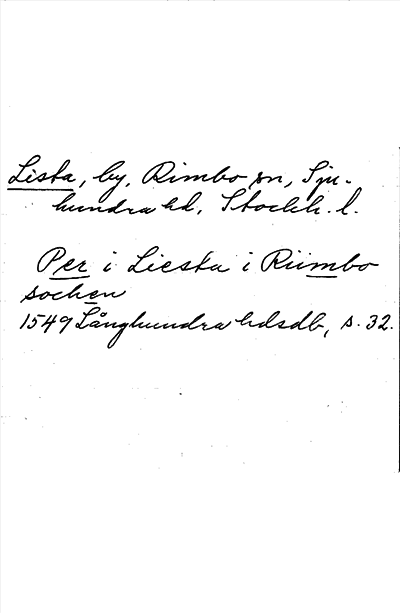 Lista, by, Rimbo sn, Sju-
hundra hd, Stockh. l.
Per i Liesta i Riimbo
sochen
1549 Långhundra hdsdb, s. 32.